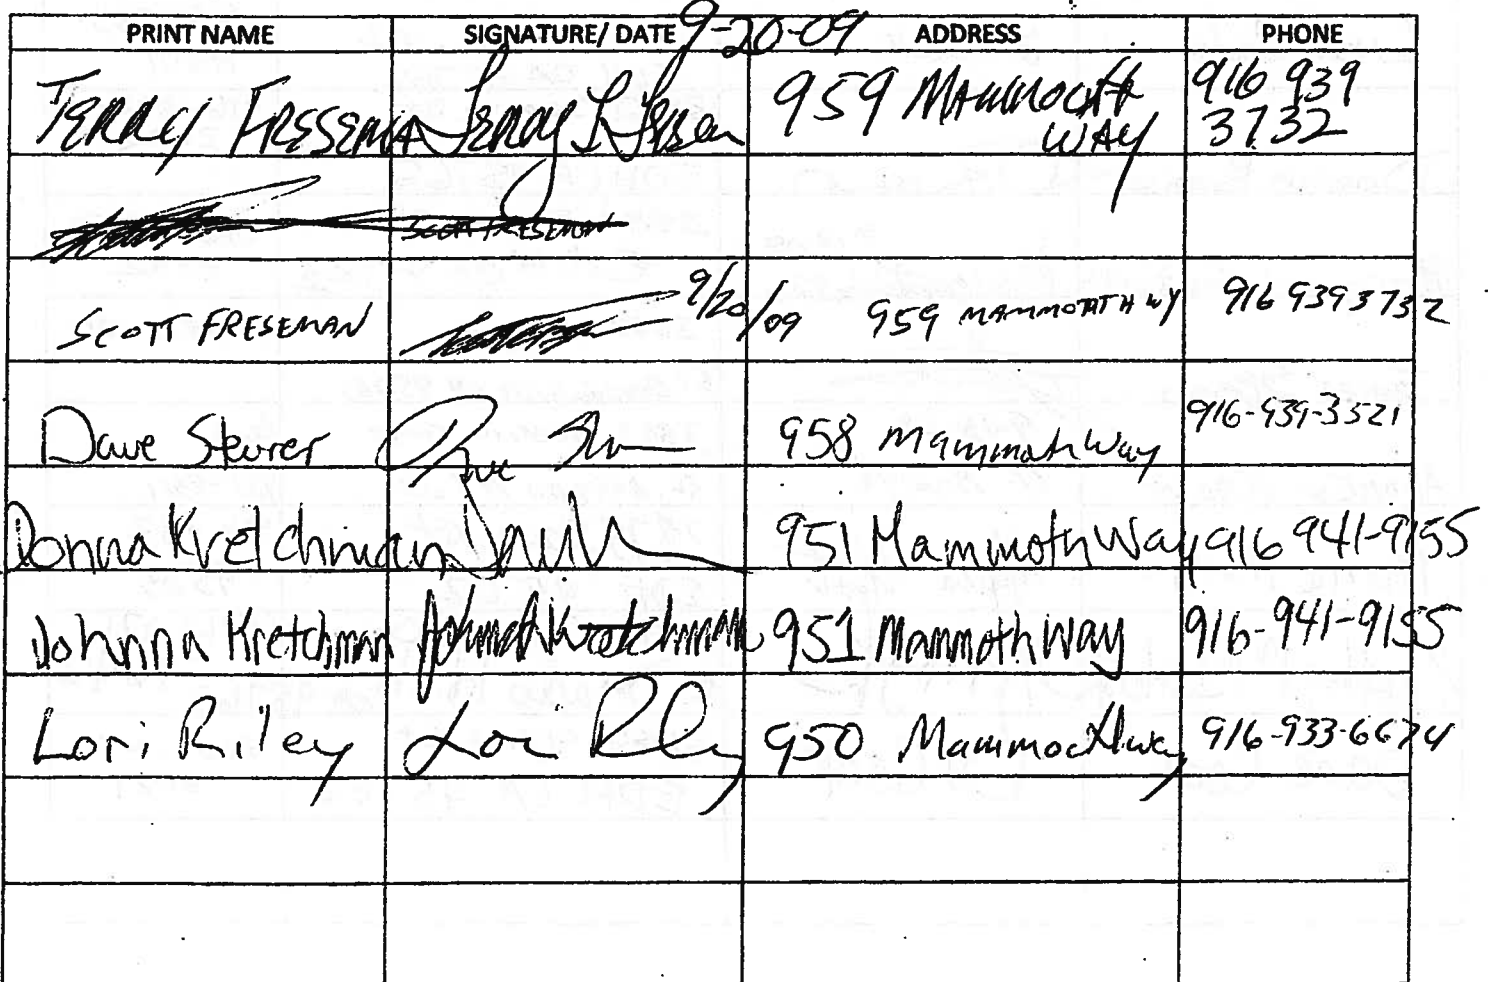 PRINT NAME SIGNATURE/ DATE 9-20-09 ADDRESS PHONE
TERRY FRESEMAN 959 MAMMOUTH WAY 916 939 3732
SCOTT FRESEMAN
SCOTT FRESEMAN 9/20/09 959 MAMMOTH WY 916 939 3732
Dave Steurer Dave 958 Mammoth Way 916-939-3521
Donna Kretchman 951 Mammoth Way 916 941-9155
Johnna Kretchman Johnna Kretchman 951 Mammoth Way 916-941-9155
Lori Riley Lori Riley 950 Mammoth Way 916-933-6674